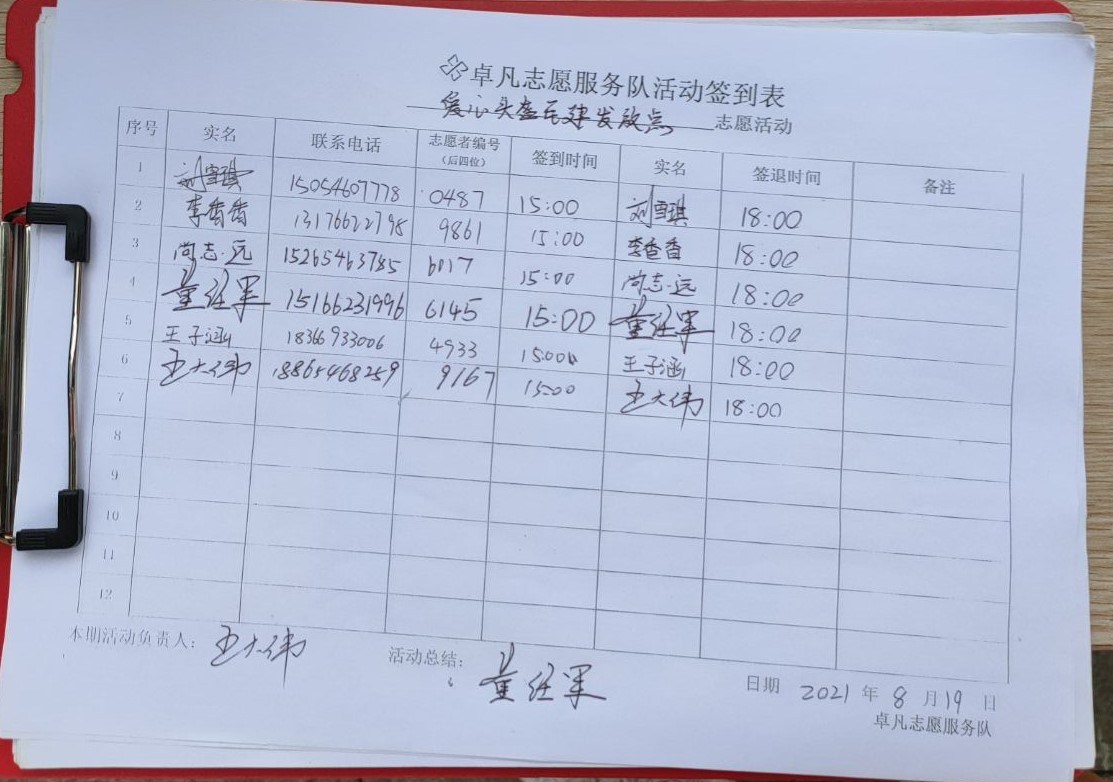 卓凡志愿服务队活动签到表
爱心头盔氏建发放点 志愿活动
序号 实名 联系电话 志愿者编号（后四位） 签到时间 实名 签退时间 备注
1 刘雪琪 15054607778 0487 15:00 刘雪琪 18:00
2 李香香 13176622798 9861 15:00 李香香 18:00
3 尚志远 15265463785 6017 15:00 尚志远 18:00
4 董经军 15166231996 6145 15:00 董经军 18:00
5 王子涵 18366933006 4933 15:00 王子涵 18:00
6 王大伟 18865468259 9167 15:00 王大伟 18:00
7
8
9
10
11
12
本期活动负责人： 王大伟 活动总结： 董经军 日期 2021 年 8 月 19 日
卓凡志愿服务队